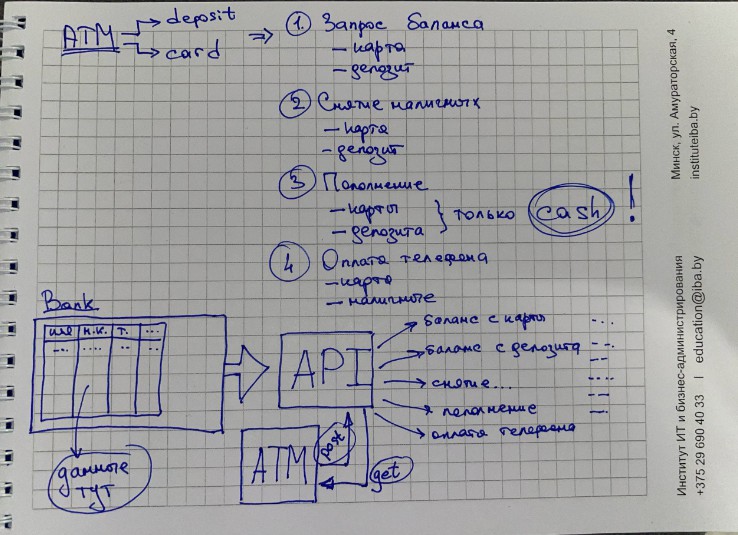 ATM
deposit
card
⇒ 1. Запрос баланса
— карта
— депозит
2 Снятие наличных
— карта
— депозит
3 Пополнение
— карты
— депозита
} только cash !
4 Оплата телефона
— карта
— наличные
Bank
имя н.к. т. ...
данные
тут
API
баланс с карты
баланс с депозита
снятие...
пополнение
оплата телефона
ATM
post
get
Институт ИТ и бизнес-администрирования
+375 29 690 40 33 | education@iba.by
Минск, ул. Амураторская, 4
instituteiba.by